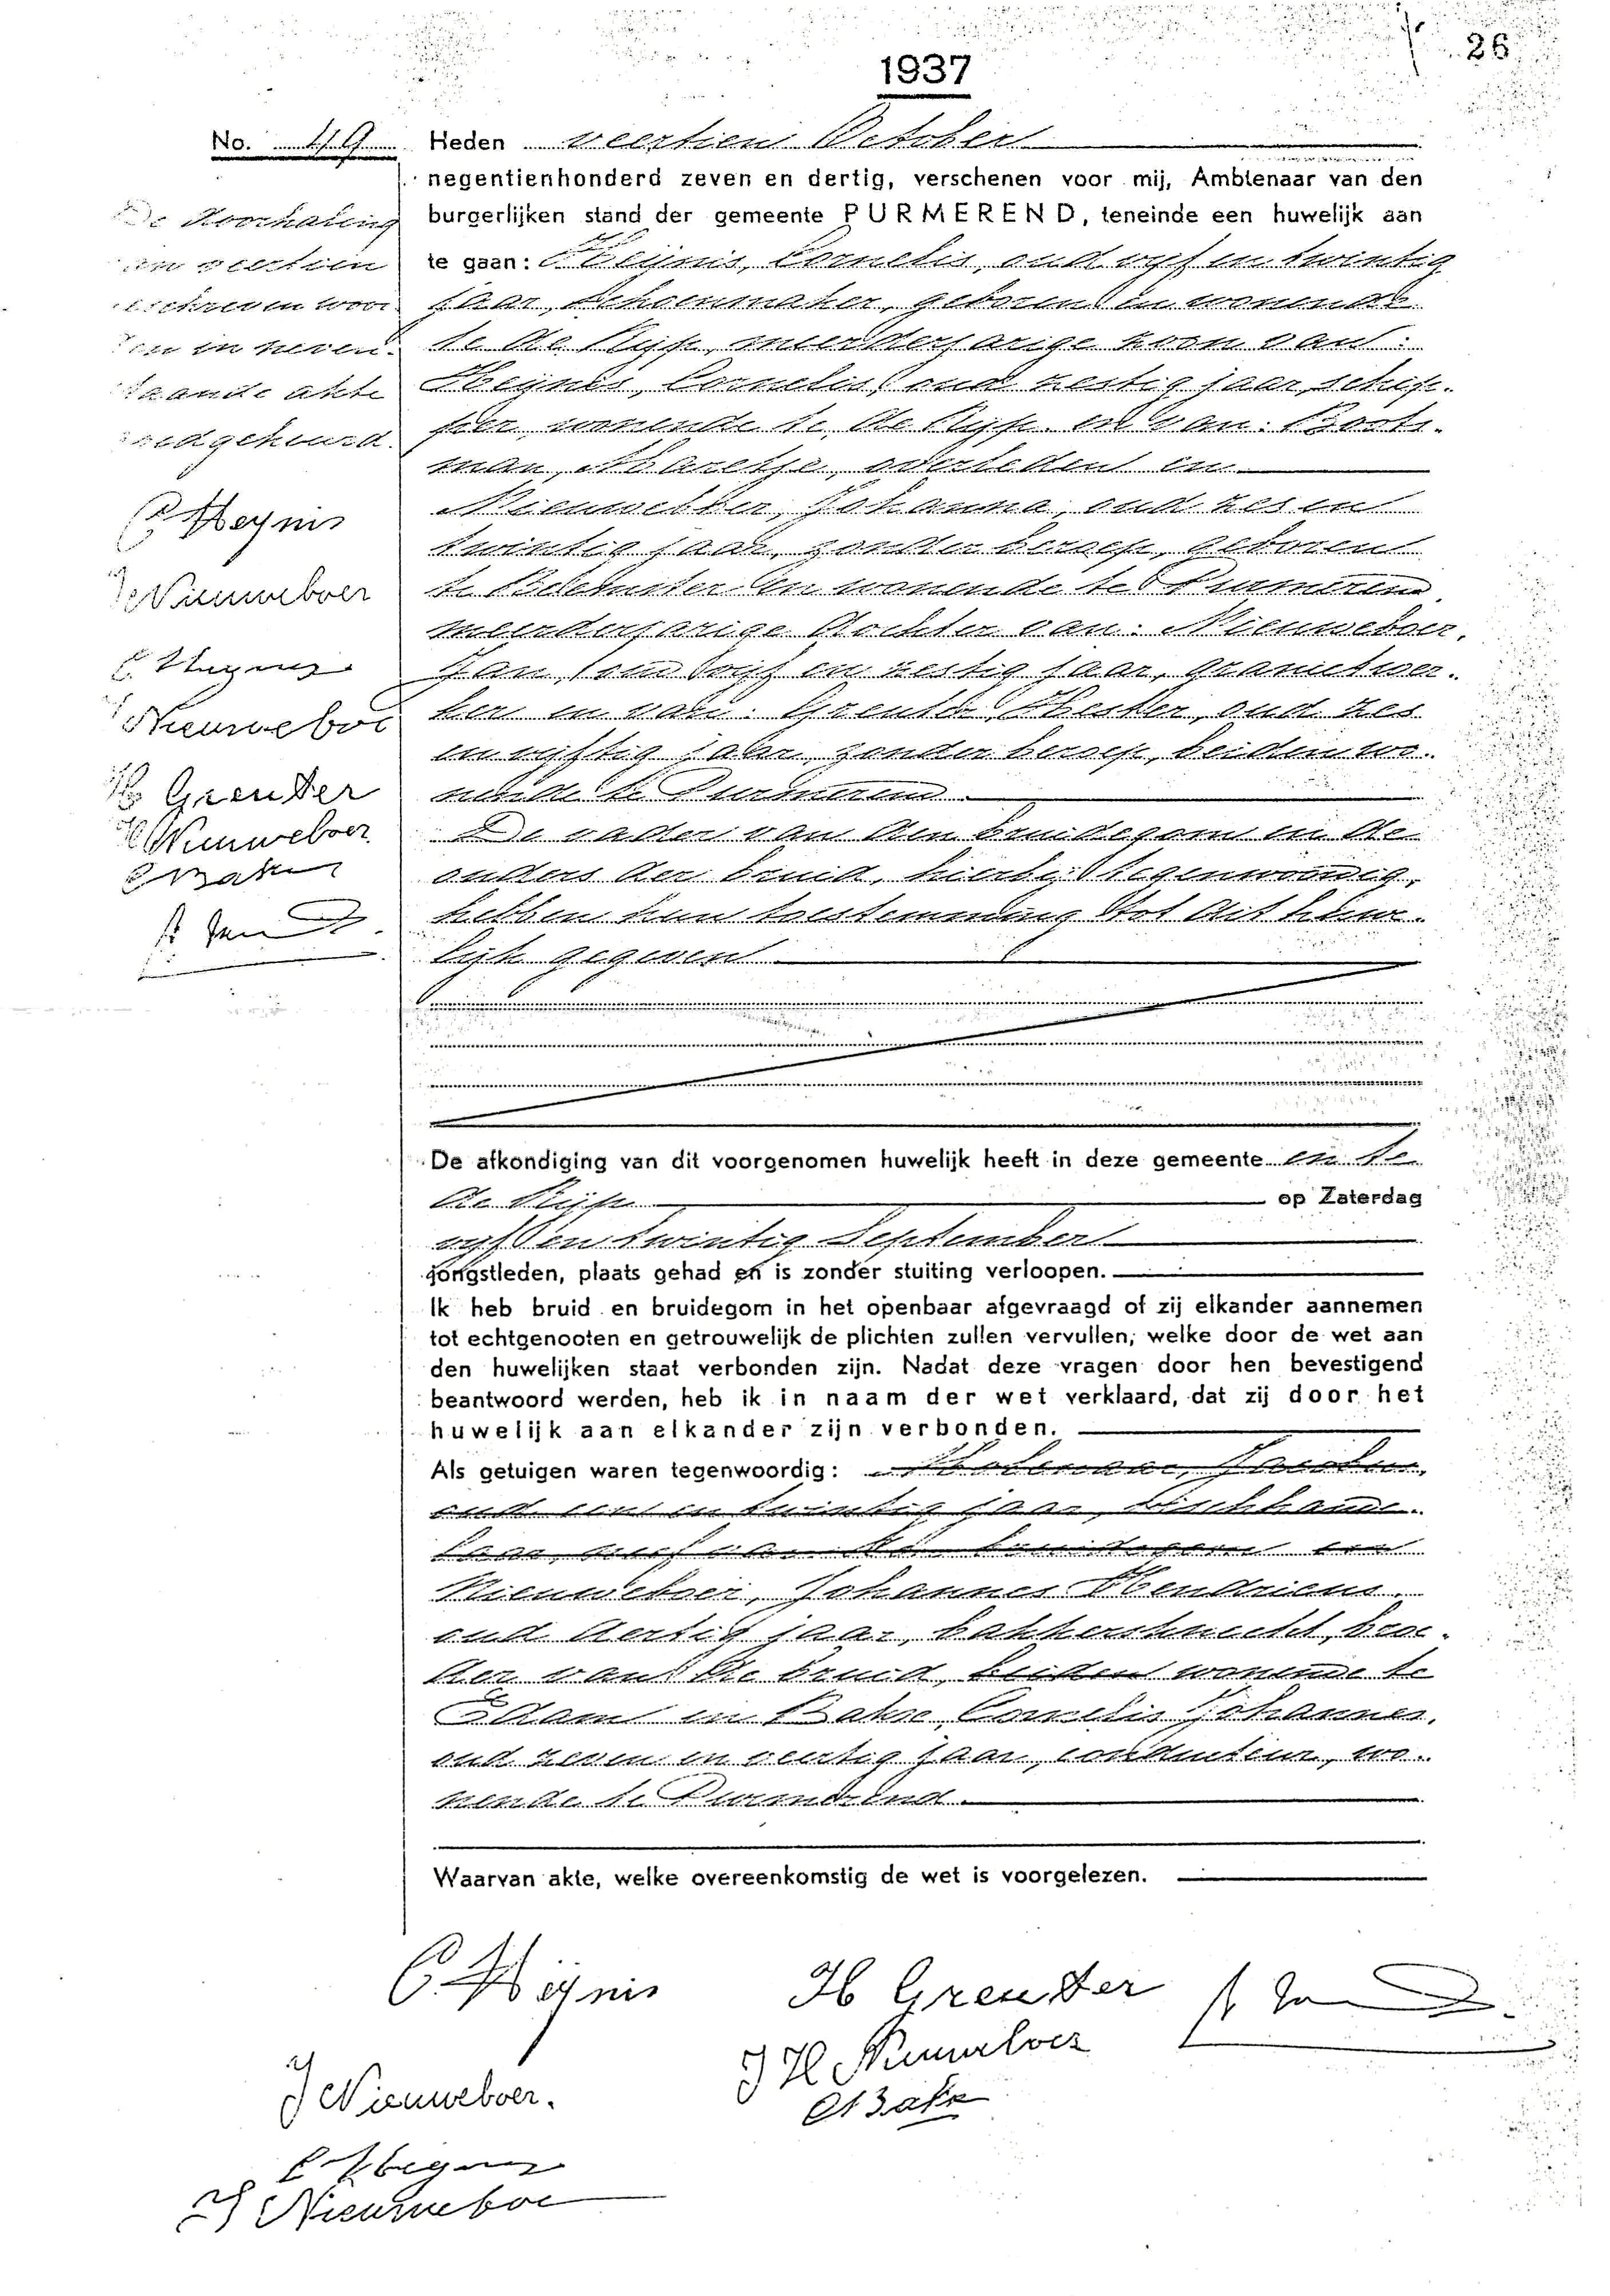 26
1937
No. 49
Heden veertien October
negentienhonderd zeven en dertig, verschenen voor mij, Ambtenaar van den
burgerlijken stand der gemeente PURMEREND, teneinde een huwelijk aan
te gaan: Heijnis, Cornelis, oud vijf en twintig
jaar, schoenmaker, geboren en wonende
te de Rijp, meerderjarige zoon van:
Heijnis, Cornelis, oud zestig jaar, schip-
per, wonende te de Rijp en van:
man, overleden en
Nieuweboer, Johanna, oud zes en
twintig jaar, zonder beroep, geboren
te Beemster en wonende te Purmerend,
meerderjarige dochter van: Nieuweboer,
Jan, oud vijf en zestig jaar, grondwer-
ker en van: Greuter, oud zes
en vijftig jaar, zonder beroep, beiden wo-
nende te Purmerend.
De vader van den bruidegom en de
ouders der bruid, hierbij tegenwoordig,
hebben hun toestemming tot dit huwe-
lijk gegeven
De doorhaling
van veertien
geschreven woor-
den in neven-
staande akte
goedgekeurd.
C Heynis
J Nieuweboer
Nieuweboe
H Greuter
J H Nieuweboer
De afkondiging van dit voorgenomen huwelijk heeft in deze gemeente en te
de Rijp op Zaterdag
vijf en twintig September
jongstleden, plaats gehad en is zonder stuiting verloopen.
Ik heb bruid en bruidegom in het openbaar afgevraagd of zij elkander aannemen
tot echtgenooten en getrouwelijk de plichten zullen vervullen, welke door de wet aan
den huwelijken staat verbonden zijn. Nadat deze vragen door hen bevestigend
beantwoord werden, heb ik in naam der wet verklaard, dat zij door het
huwelijk aan elkander zijn verbonden.
Als getuigen waren tegenwoordig:
oud een en twintig jaar,
bruidegom en
Nieuweboer, Johannes Hendricus,
oud dertig jaar, bakkersknecht, broe-
der van de bruid, beiden wonende te
Edam en Bakie, Cornelis Johannes,
oud zeven en veertig jaar, conducteur, wo-
nende te Purmerend.
Waarvan akte, welke overeenkomstig de wet is voorgelezen.
C. Heijnis
H Greuter
J H Nieuweboer
J Nieuweboer.
J Nieuweboe